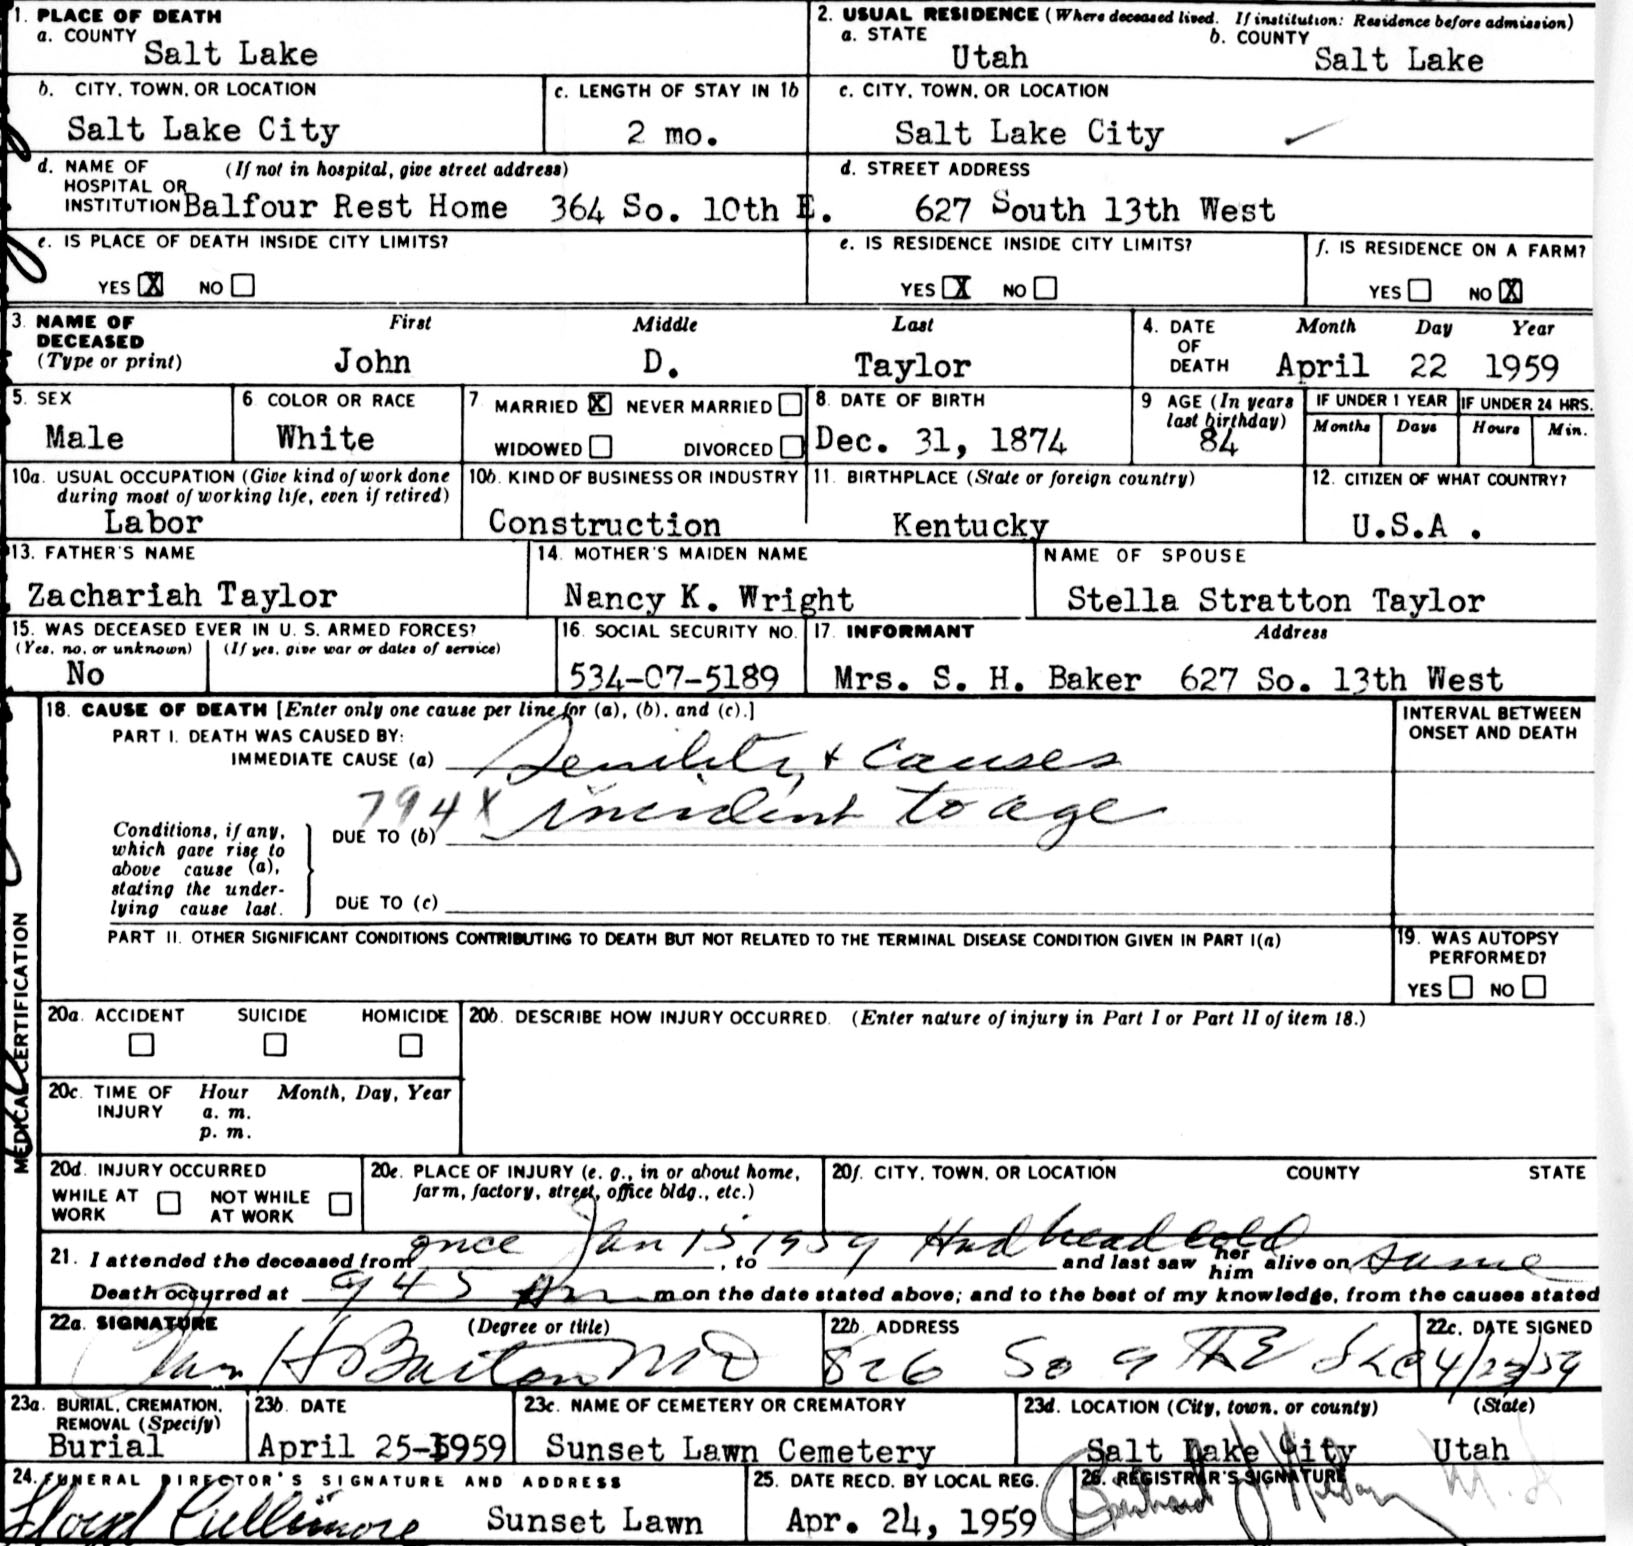 1. PLACE OF DEATH
a. COUNTY
Salt Lake
2. USUAL RESIDENCE (Where deceased lived. If institution: Residence before admission)
a. STATE
Utah
b. COUNTY
Salt Lake
b. CITY, TOWN, OR LOCATION
Salt Lake City
c. LENGTH OF STAY IN 1b
2 mo.
c. CITY, TOWN, OR LOCATION
Salt Lake City
d. NAME OF (If not in hospital, give street address)
HOSPITAL OR
INSTITUTION Balfour Rest Home 364 So. 10th E.
d. STREET ADDRESS
627 South 13th West
e. IS PLACE OF DEATH INSIDE CITY LIMITS?
YES X NO
e. IS RESIDENCE INSIDE CITY LIMITS?
YES X NO
f. IS RESIDENCE ON A FARM?
YES NO X
3. NAME OF DECEASED (Type or print)
First Middle Last
John D. Taylor
4. DATE OF DEATH
Month Day Year
April 22 1959
5. SEX
Male
6. COLOR OR RACE
White
7. MARRIED X NEVER MARRIED
WIDOWED DIVORCED
8. DATE OF BIRTH
Dec. 31, 1874
9 AGE (In years last birthday)
84
IF UNDER 1 YEAR
Months Days
IF UNDER 24 HRS.
Hours Min.
10a. USUAL OCCUPATION (Give kind of work done
during most of working life, even if retired)
Labor
10b. KIND OF BUSINESS OR INDUSTRY
Construction
11. BIRTHPLACE (State or foreign country)
Kentucky
12. CITIZEN OF WHAT COUNTRY?
U.S.A .
13. FATHER'S NAME
Zachariah Taylor
14. MOTHER'S MAIDEN NAME
Nancy K. Wright
NAME OF SPOUSE
Stella Stratton Taylor
15. WAS DECEASED EVER IN U. S. ARMED FORCES?
(Yes, no, or unknown) (If yes, give war or dates of service)
No
16. SOCIAL SECURITY NO.
534-07-5189
17. INFORMANT Address
Mrs. S. H. Baker 627 So. 13th West
MEDICAL CERTIFICATION
18. CAUSE OF DEATH [Enter only one cause per line for (a), (b), and (c).]
PART I. DEATH WAS CAUSED BY:
IMMEDIATE CAUSE (a) Senility + causes
794X incident to age
Conditions, if any,
which gave rise to
above cause (a),
stating the under-
lying cause last.
DUE TO (b)
DUE TO (c)
INTERVAL BETWEEN
ONSET AND DEATH
PART II. OTHER SIGNIFICANT CONDITIONS CONTRIBUTING TO DEATH BUT NOT RELATED TO THE TERMINAL DISEASE CONDITION GIVEN IN PART I(a)
19. WAS AUTOPSY
PERFORMED?
YES NO
20a. ACCIDENT SUICIDE HOMICIDE
20b. DESCRIBE HOW INJURY OCCURRED. (Enter nature of injury in Part I or Part II of item 18.)
20c. TIME OF INJURY
Hour Month, Day, Year
a. m.
p. m.
20d. INJURY OCCURRED
WHILE AT WORK NOT WHILE AT WORK
20e. PLACE OF INJURY (e. g., in or about home,
farm, factory, street, office bldg., etc.)
20f. CITY, TOWN, OR LOCATION COUNTY STATE
21. I attended the deceased from once Jan 15, 1959, to Had head cold and last saw her him alive on same
Death occurred at 945 Am m on the date stated above; and to the best of my knowledge, from the causes stated
22a. SIGNATURE (Degree or title)
H Barton MD
22b. ADDRESS
826 So 9 Th E SLC
22c. DATE SIGNED
4/23/59
23a. BURIAL, CREMATION,
REMOVAL (Specify)
Burial
23b. DATE
April 25-1959
23c. NAME OF CEMETERY OR CREMATORY
Sunset Lawn Cemetery
23d. LOCATION (City, town, or county) (State)
Salt Lake City Utah
24. FUNERAL DIRECTOR'S SIGNATURE AND ADDRESS
Lloyd Cullimore Sunset Lawn
25. DATE RECD. BY LOCAL REG.
Apr. 24, 1959
26. REGISTRAR'S SIGNATURE